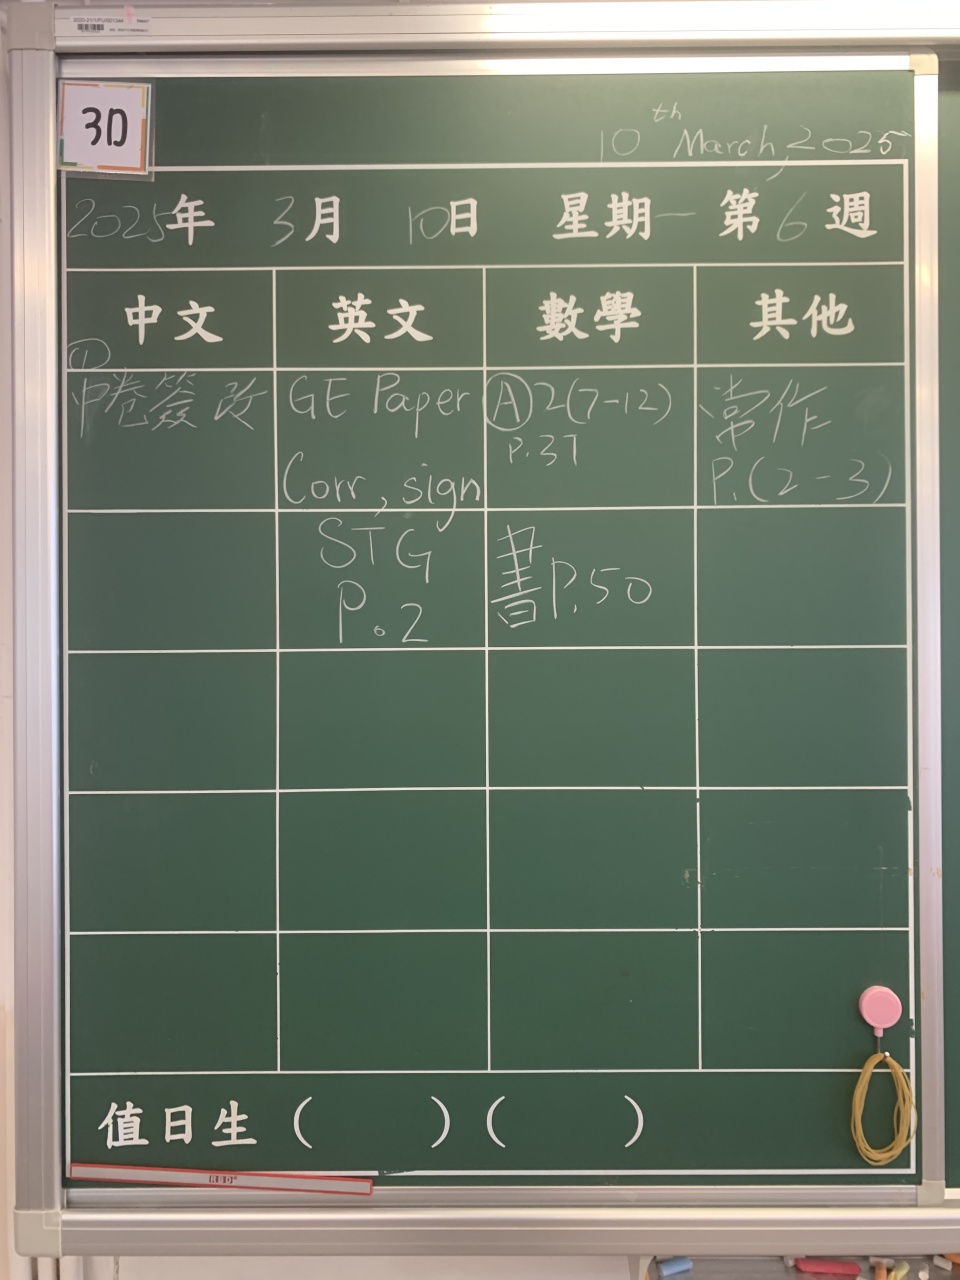 3D
10th March, 2025
2025年 3月 10日 星期一 第6週
中文 英文 數學 其他
①
中卷簽改
GE Paper
Corr, sign
Ⓐ2(7-12)
P.37
常作
P.(2-3)
STG
P.2
書P.50
值日生 ( ) ( )